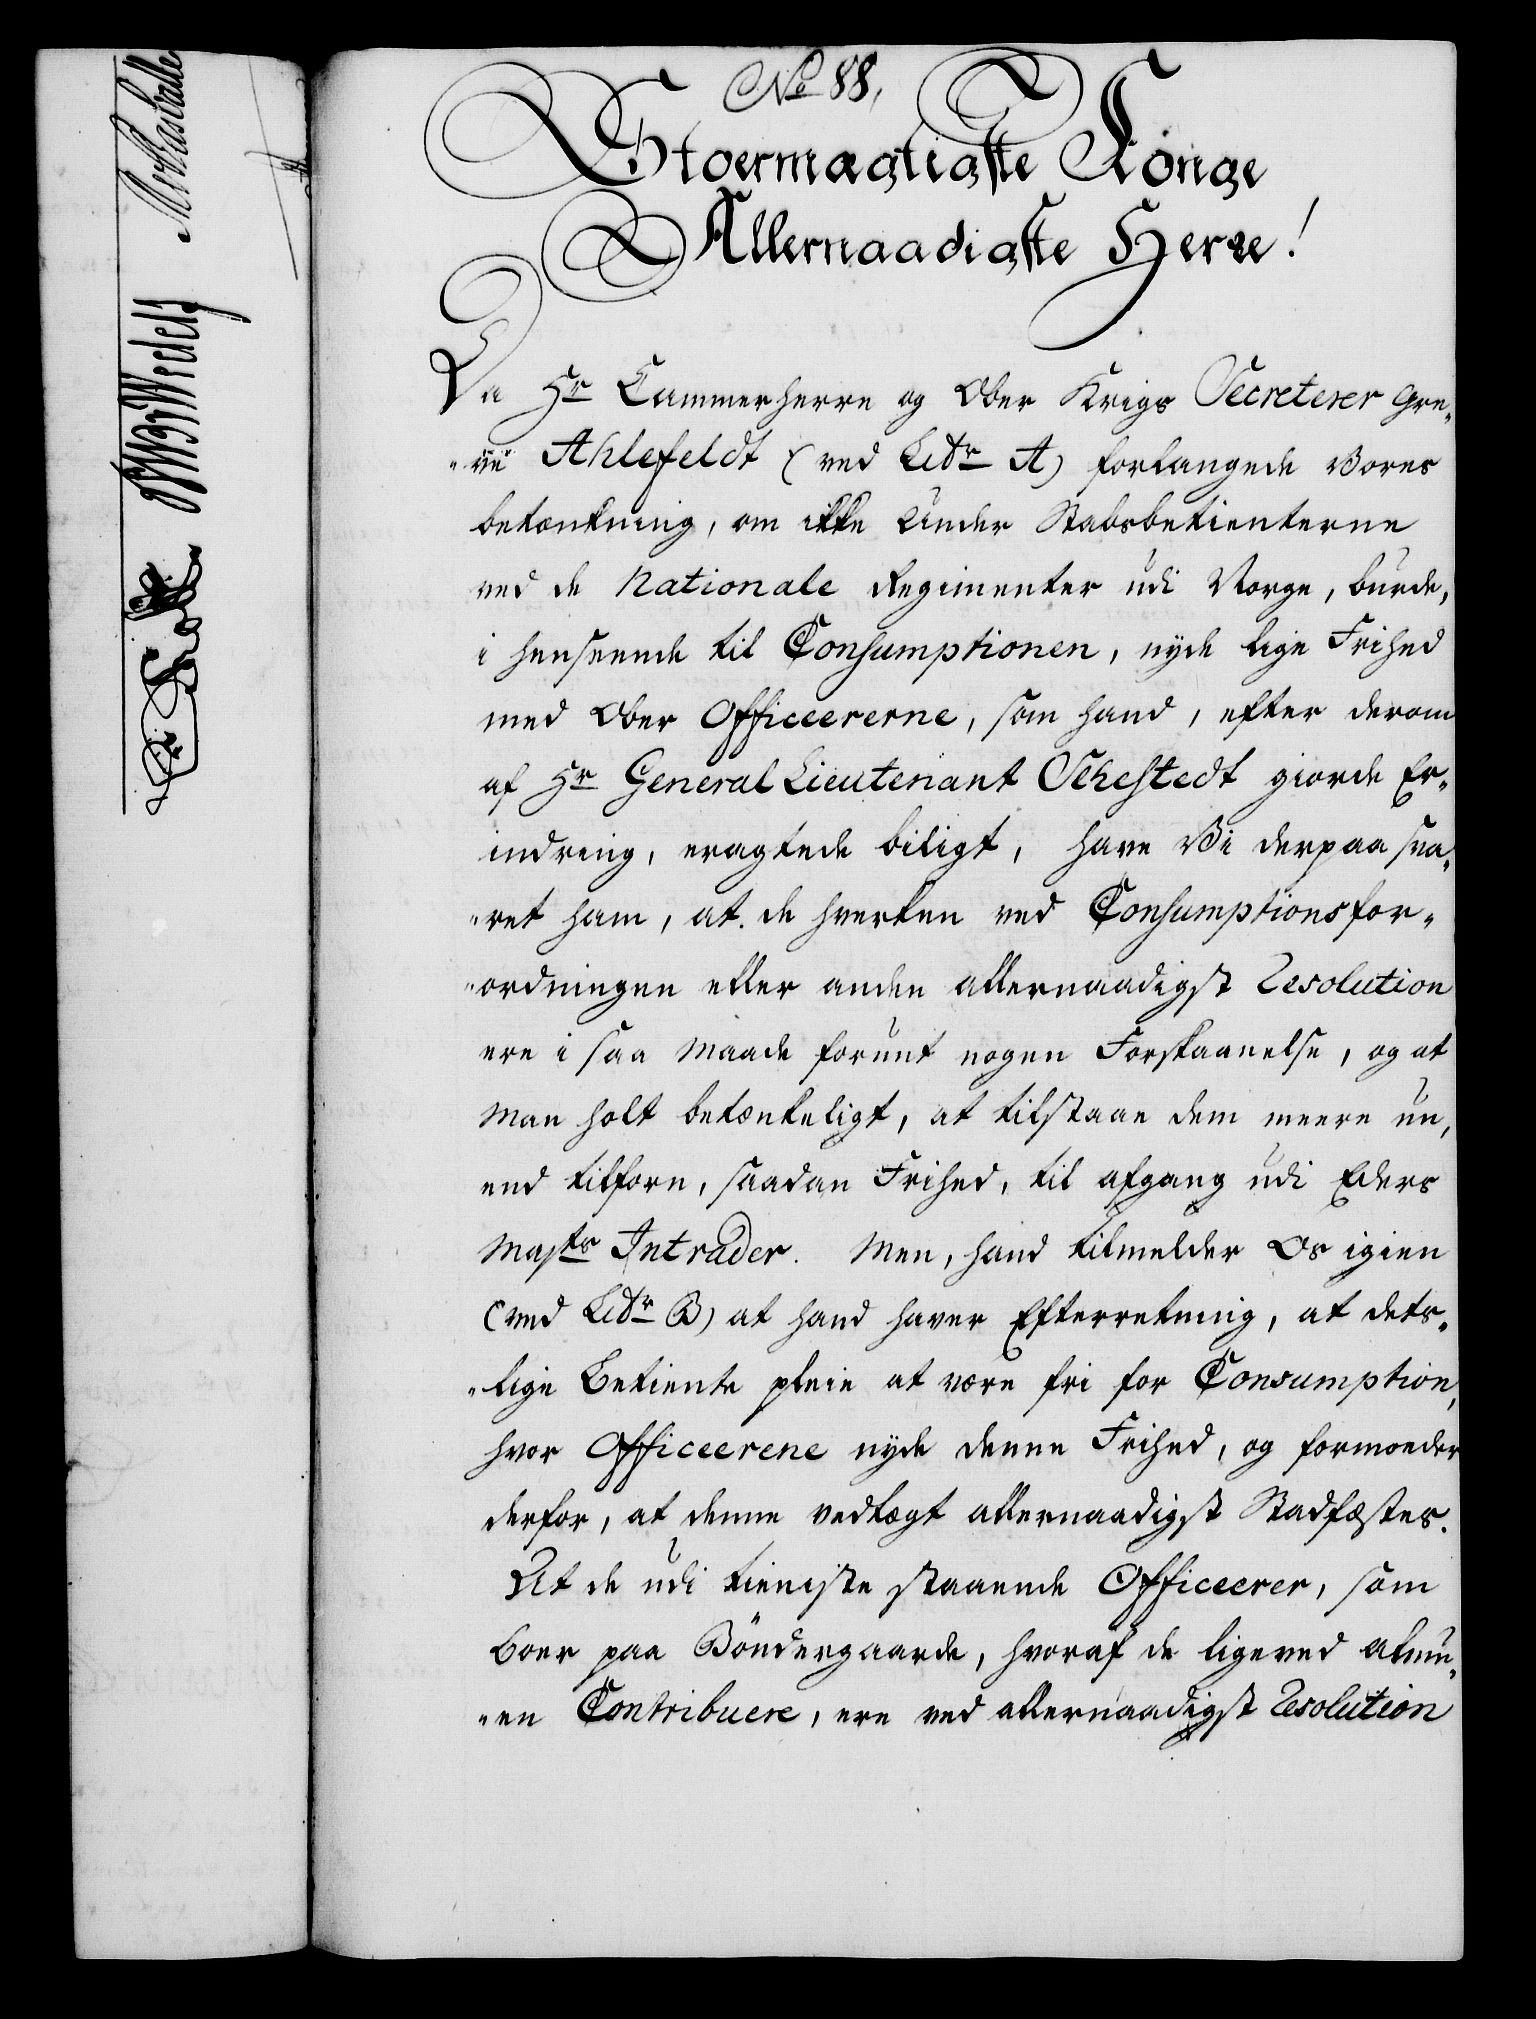 No 88,
Stoermægtigste Konge
Allernaadigste Herre!
Da Hr Cammerherre og Ober Krigs Secreterer Gre„
„ve Ahlefeldt (ved Litr A) forlangede Vores
betænkning, om ikke Under Stabsbetienterne
ved de Nationale Regimenter udi Norge, burde,
i henseende til Consumptionen, nyde lige Frihed
med Ober Officeererne, som hand, efter derom
af Hr General Lieutenant Sehestedt giorde Er„
indring, eragtede biligt, have Vi derpaa sva„
„ret ham, at de hverken ved Consumptionsfor„
„ordningen eller anden allernaadigst Resolution
ere i saa Maade forunt nogen Forskaanelse, og at
Man holt betænkeligt, at tilstaae dem meere nu,
end tilforn, saadan Frihed, til afgang udi Eders
Mayts Intrader. Men, hand tilmelder Os igien
(ved Litr B) at hand haver Efterretning, at dets„
„lige Betiente pleie at være fri for Consumption,
hvor Officeerene nyde denne Frihed, og formoeder
derfor, at denne vedtægt allernaadigst Stadfæstes.
At de udi tieniste staaende Officeerer, som
boer paa Böndergaarde, hvoraf de ligeved almu„
„en Contribuere, ere ved allernaadigst Resolution